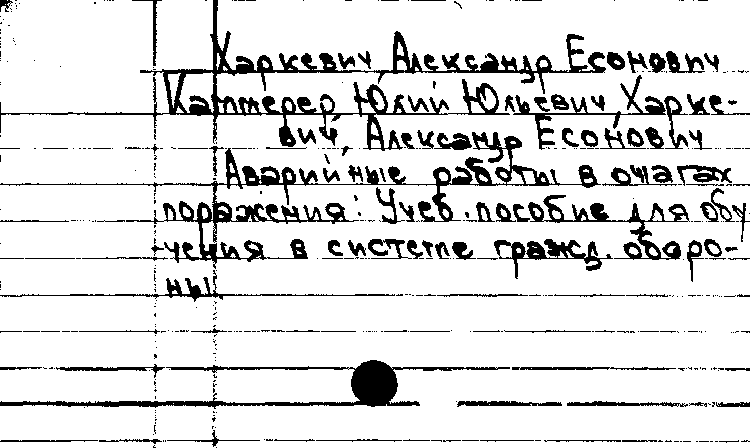 Харкевич, Александр Есонович
Каммерер, Юлий Юльевич, Харке-
вич, Александр Есонович
Аварийные работы в очагах
поражения: Учеб. пособие для обу
-чения в системе гражд. оборо-
ны.